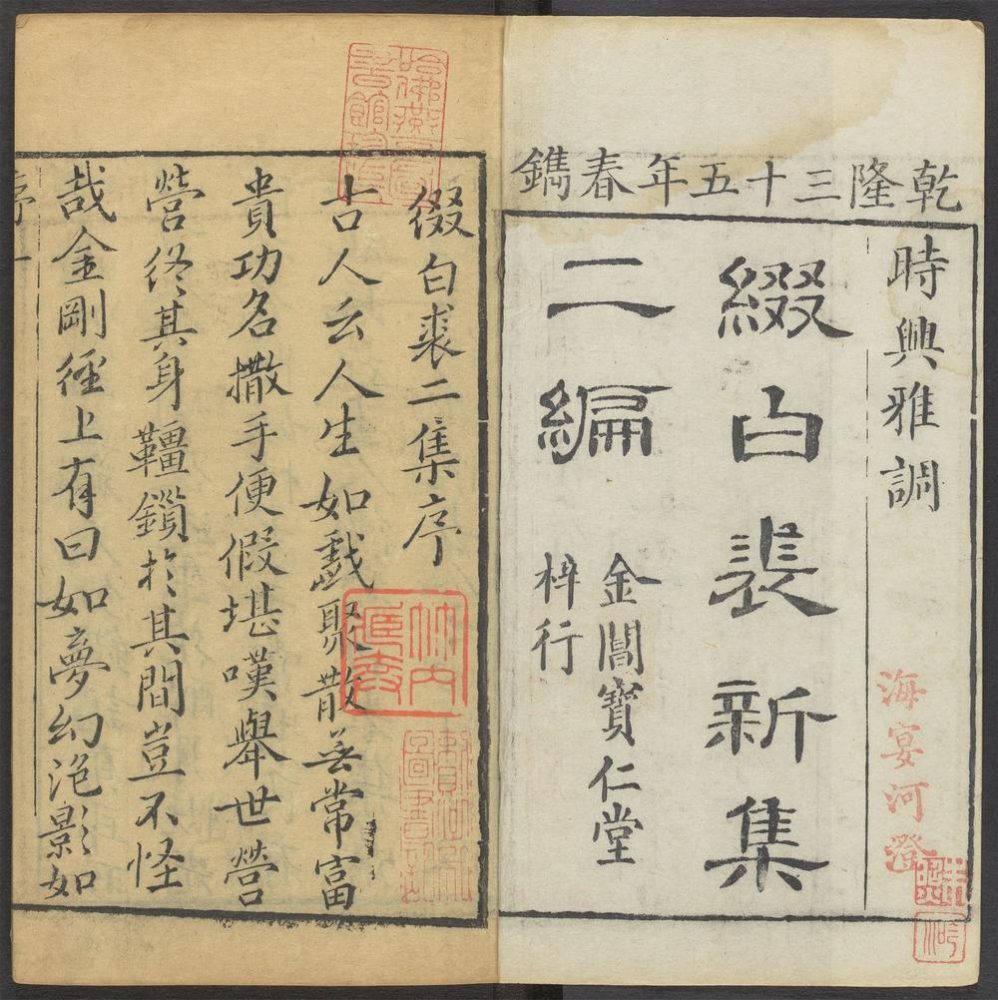 乾隆三十五年春鐫
時興雅調
海宴河澄
綴白裘新集
二編
金閶寶仁堂
梓行
綴白裘二集序
古人云人生如戲聚散無常富
貴功名撒手便假堪嘆舉世營
營終其身韁鎖於其間豈不怪
哉金剛經上有曰如夢幻泡影如
序一
竹內